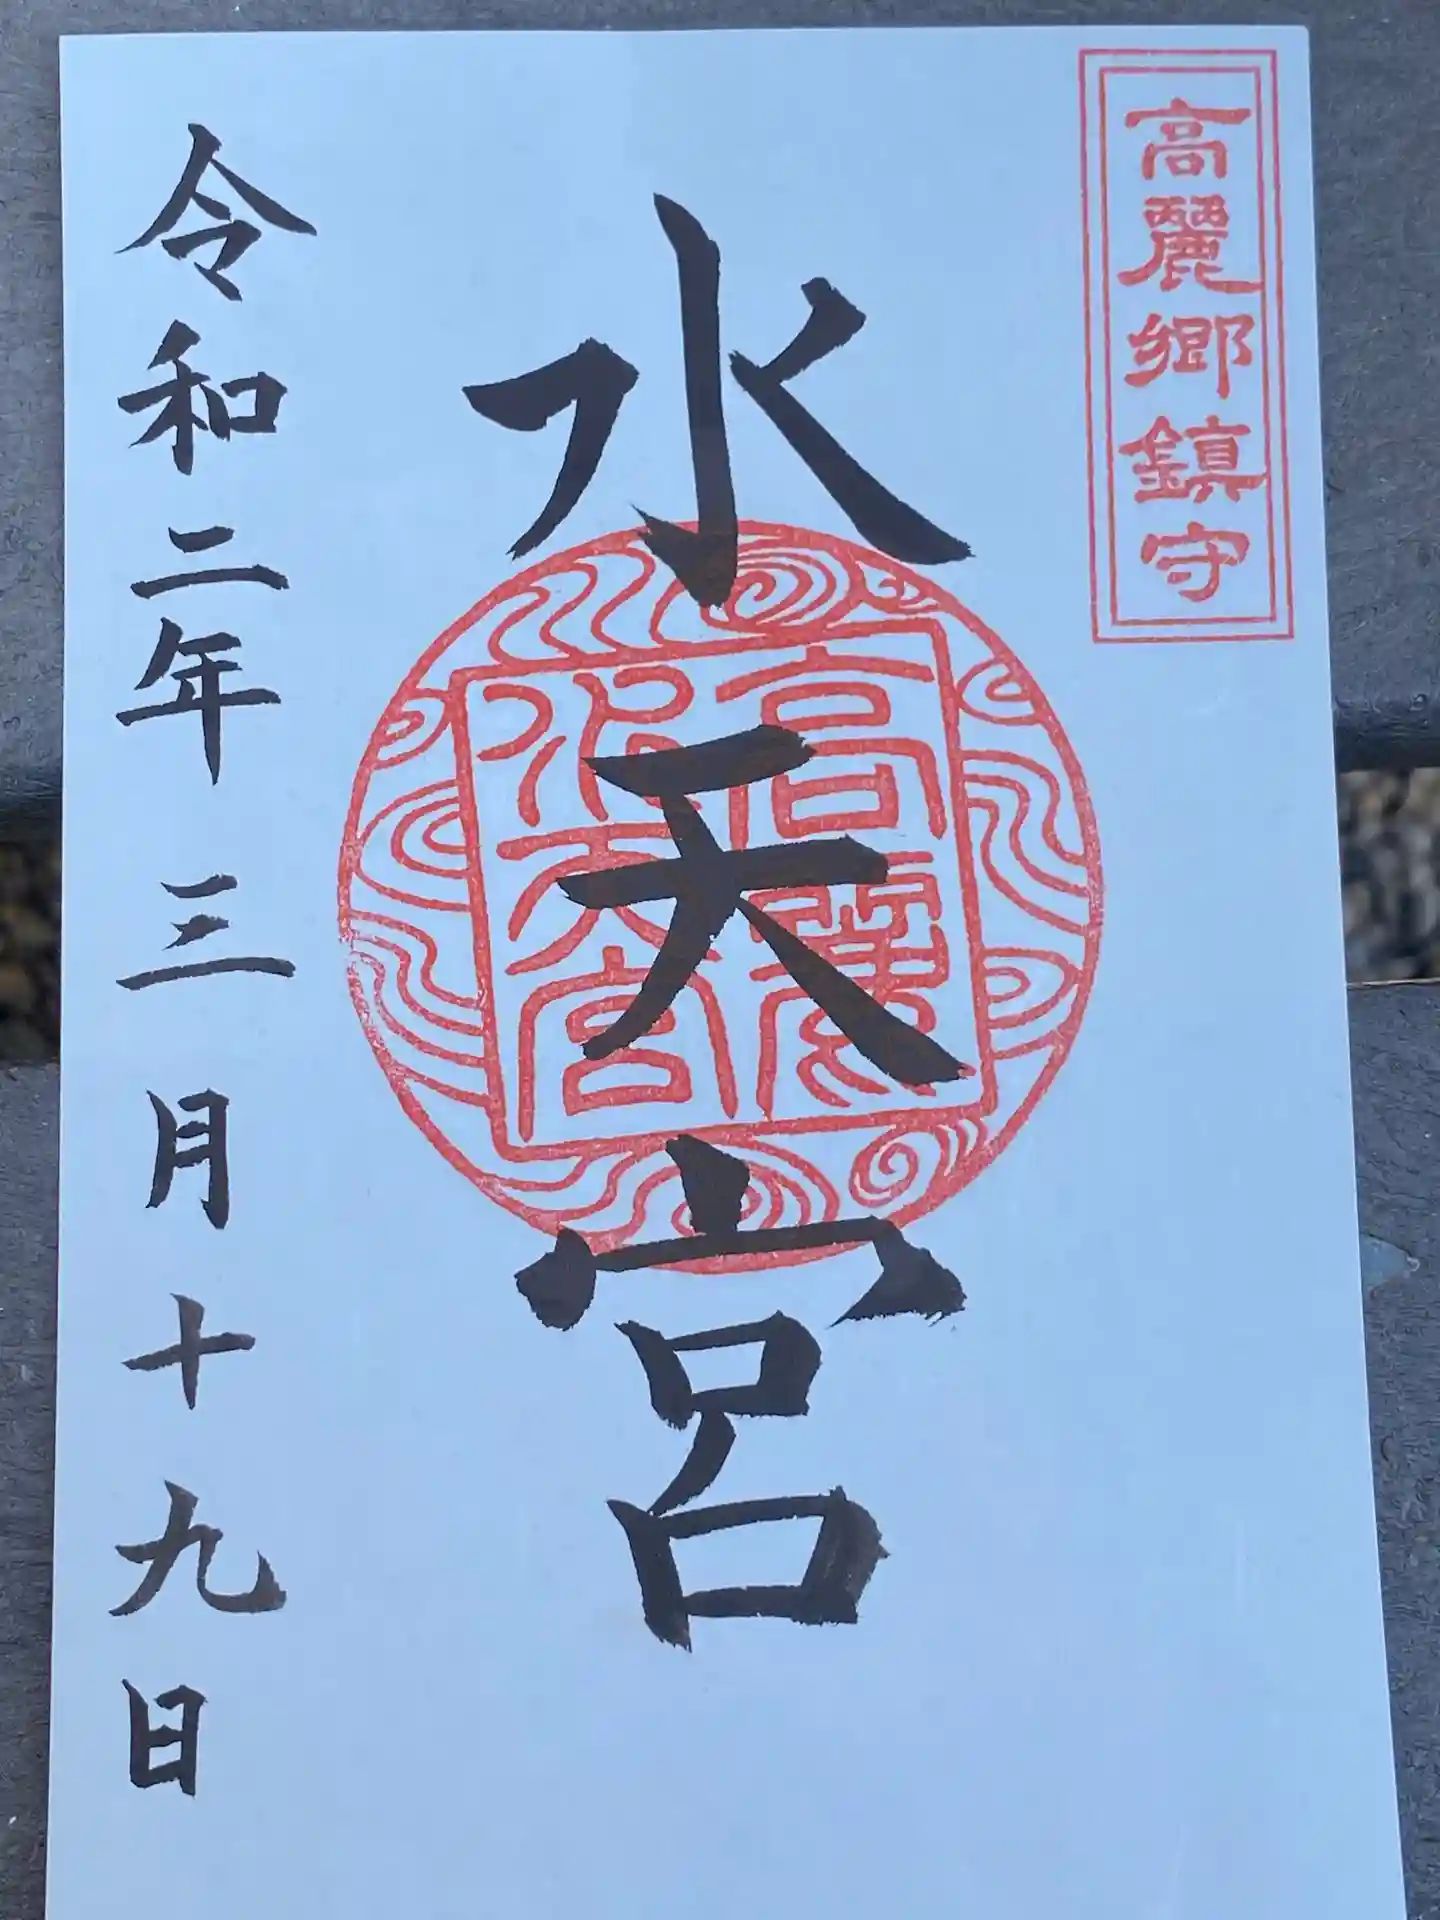 高麗郷鎮守
水天宮
高麗
水天宮
令和二年三月十九日